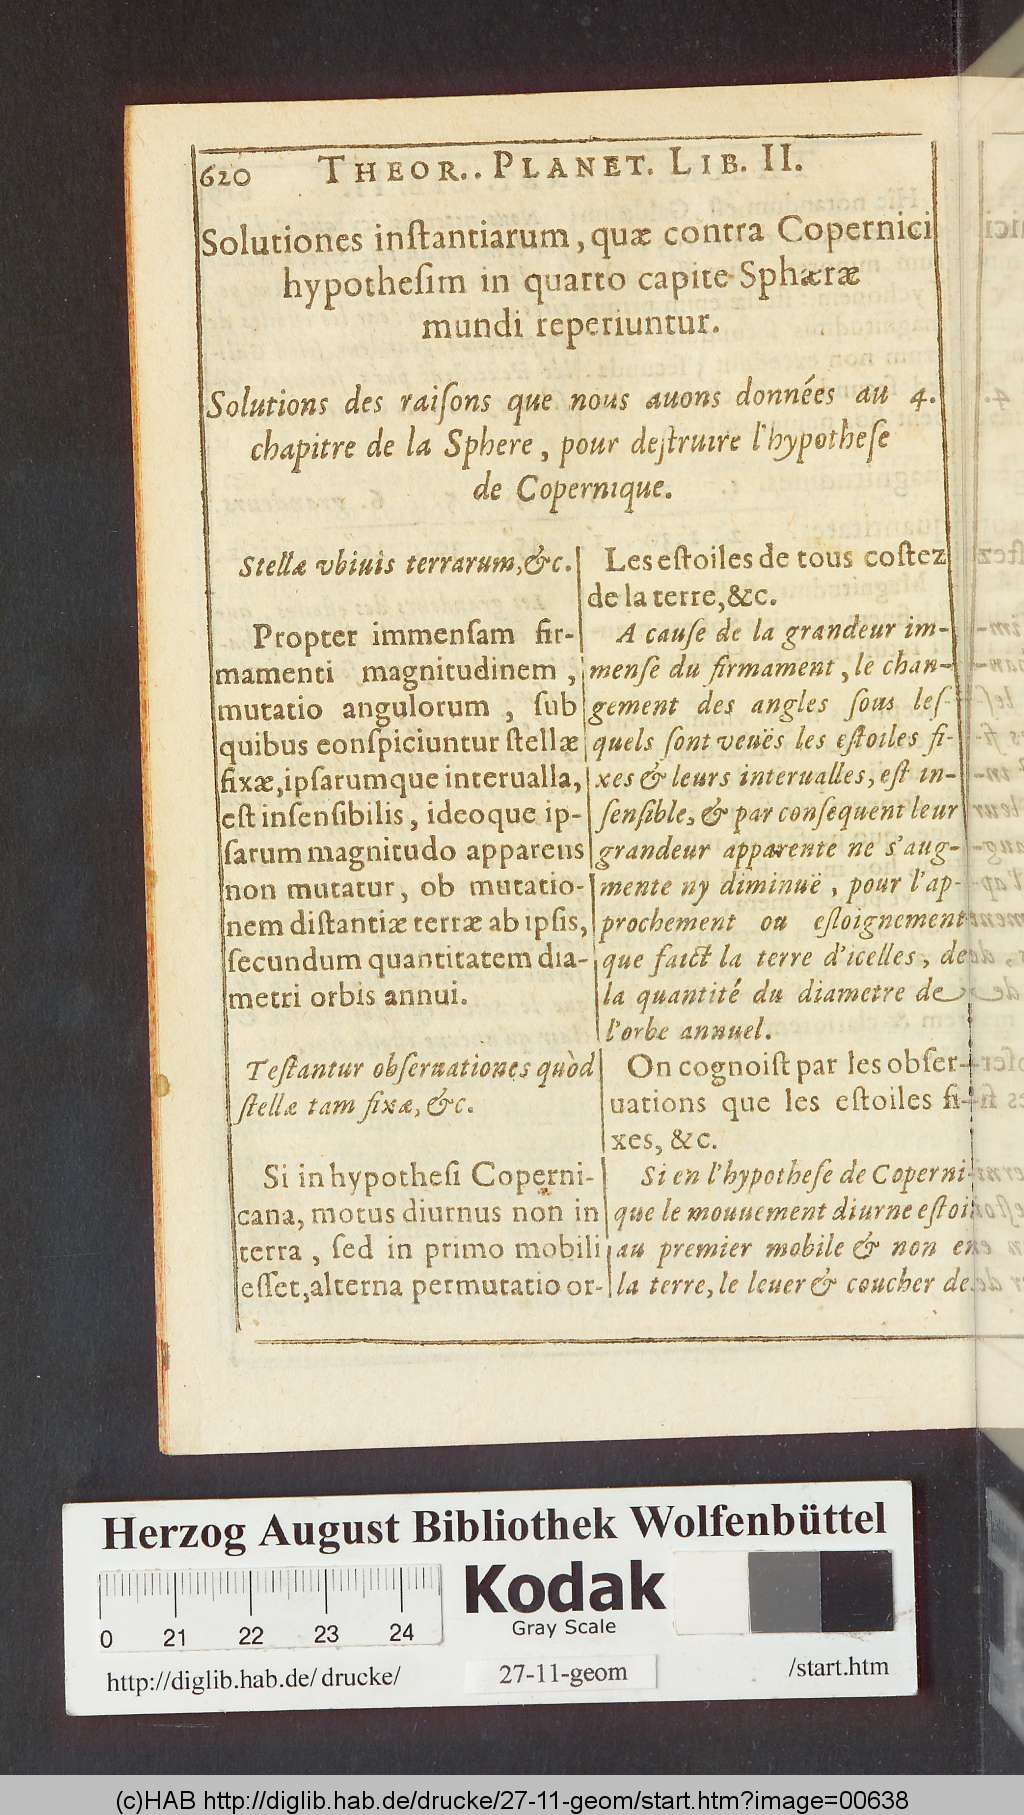 620 THEOR.. PLANET. LIB. II.
Solutiones inſtantiarum, quæ contra Copernici
hypotheſim in quarto capite Sphæræ
mundi reperiuntur.
Solutions des raiſons que nous auons données au 4.
chapitre de la Sphere, pour deſtruire l'hypotheſe
de Copernique.
Stellæ vbiuis terrarum, &c.
Propter immenſam fir-
mamenti magnitudinem,
mutatio angulorum, ſub
quibus eonſpiciuntur ſtellæ
fixæ, ipſarumque interualla,
eſt inſenſibilis, ideoque ip-
ſarum magnitudo apparens
non mutatur, ob mutatio-
nem diſtantiæ terræ ab ipſis,
ſecundum quantitatem dia-
metri orbis annui.
Teſtantur obſeruationes quòd
ſtellæ tam fixæ, &c.
Si in hypotheſi Coperni-
cana, motus diurnus non in
terra, ſed in primo mobili
eſſet, alterna permutatio or-
Les eſtoiles de tous coſtez
de la terre, &c.
A cauſe de la grandeur im-
menſe du firmament, le chan-
gement des angles ſous leſ-
quels ſont veuës les eſtoiles fi-
xes & leurs interualles, eſt in-
ſenſible, & par conſequent leur
grandeur apparente ne s'aug-
mente ny diminuë, pour l'ap-
prochement ou eſloignement
que faict la terre d'icelles, de
la quantité du diametre de
l'orbe annuel.
On cognoiſt par les obſer-
uations que les eſtoiles fi-
xes, &c.
Si en l'hypotheſe de Coperni-
que le mouuement diurne eſtoit
au premier mobile & non en
la terre, le leuer & coucher de
Herzog August Bibliothek Wolfenbüttel
Kodak
Gray Scale
0 21 22 23 24
http://diglib.hab.de/ drucke/ 27-11-geom /start.htm
(c)HAB http://diglib.hab.de/drucke/27-11-geom/start.htm?image=00638